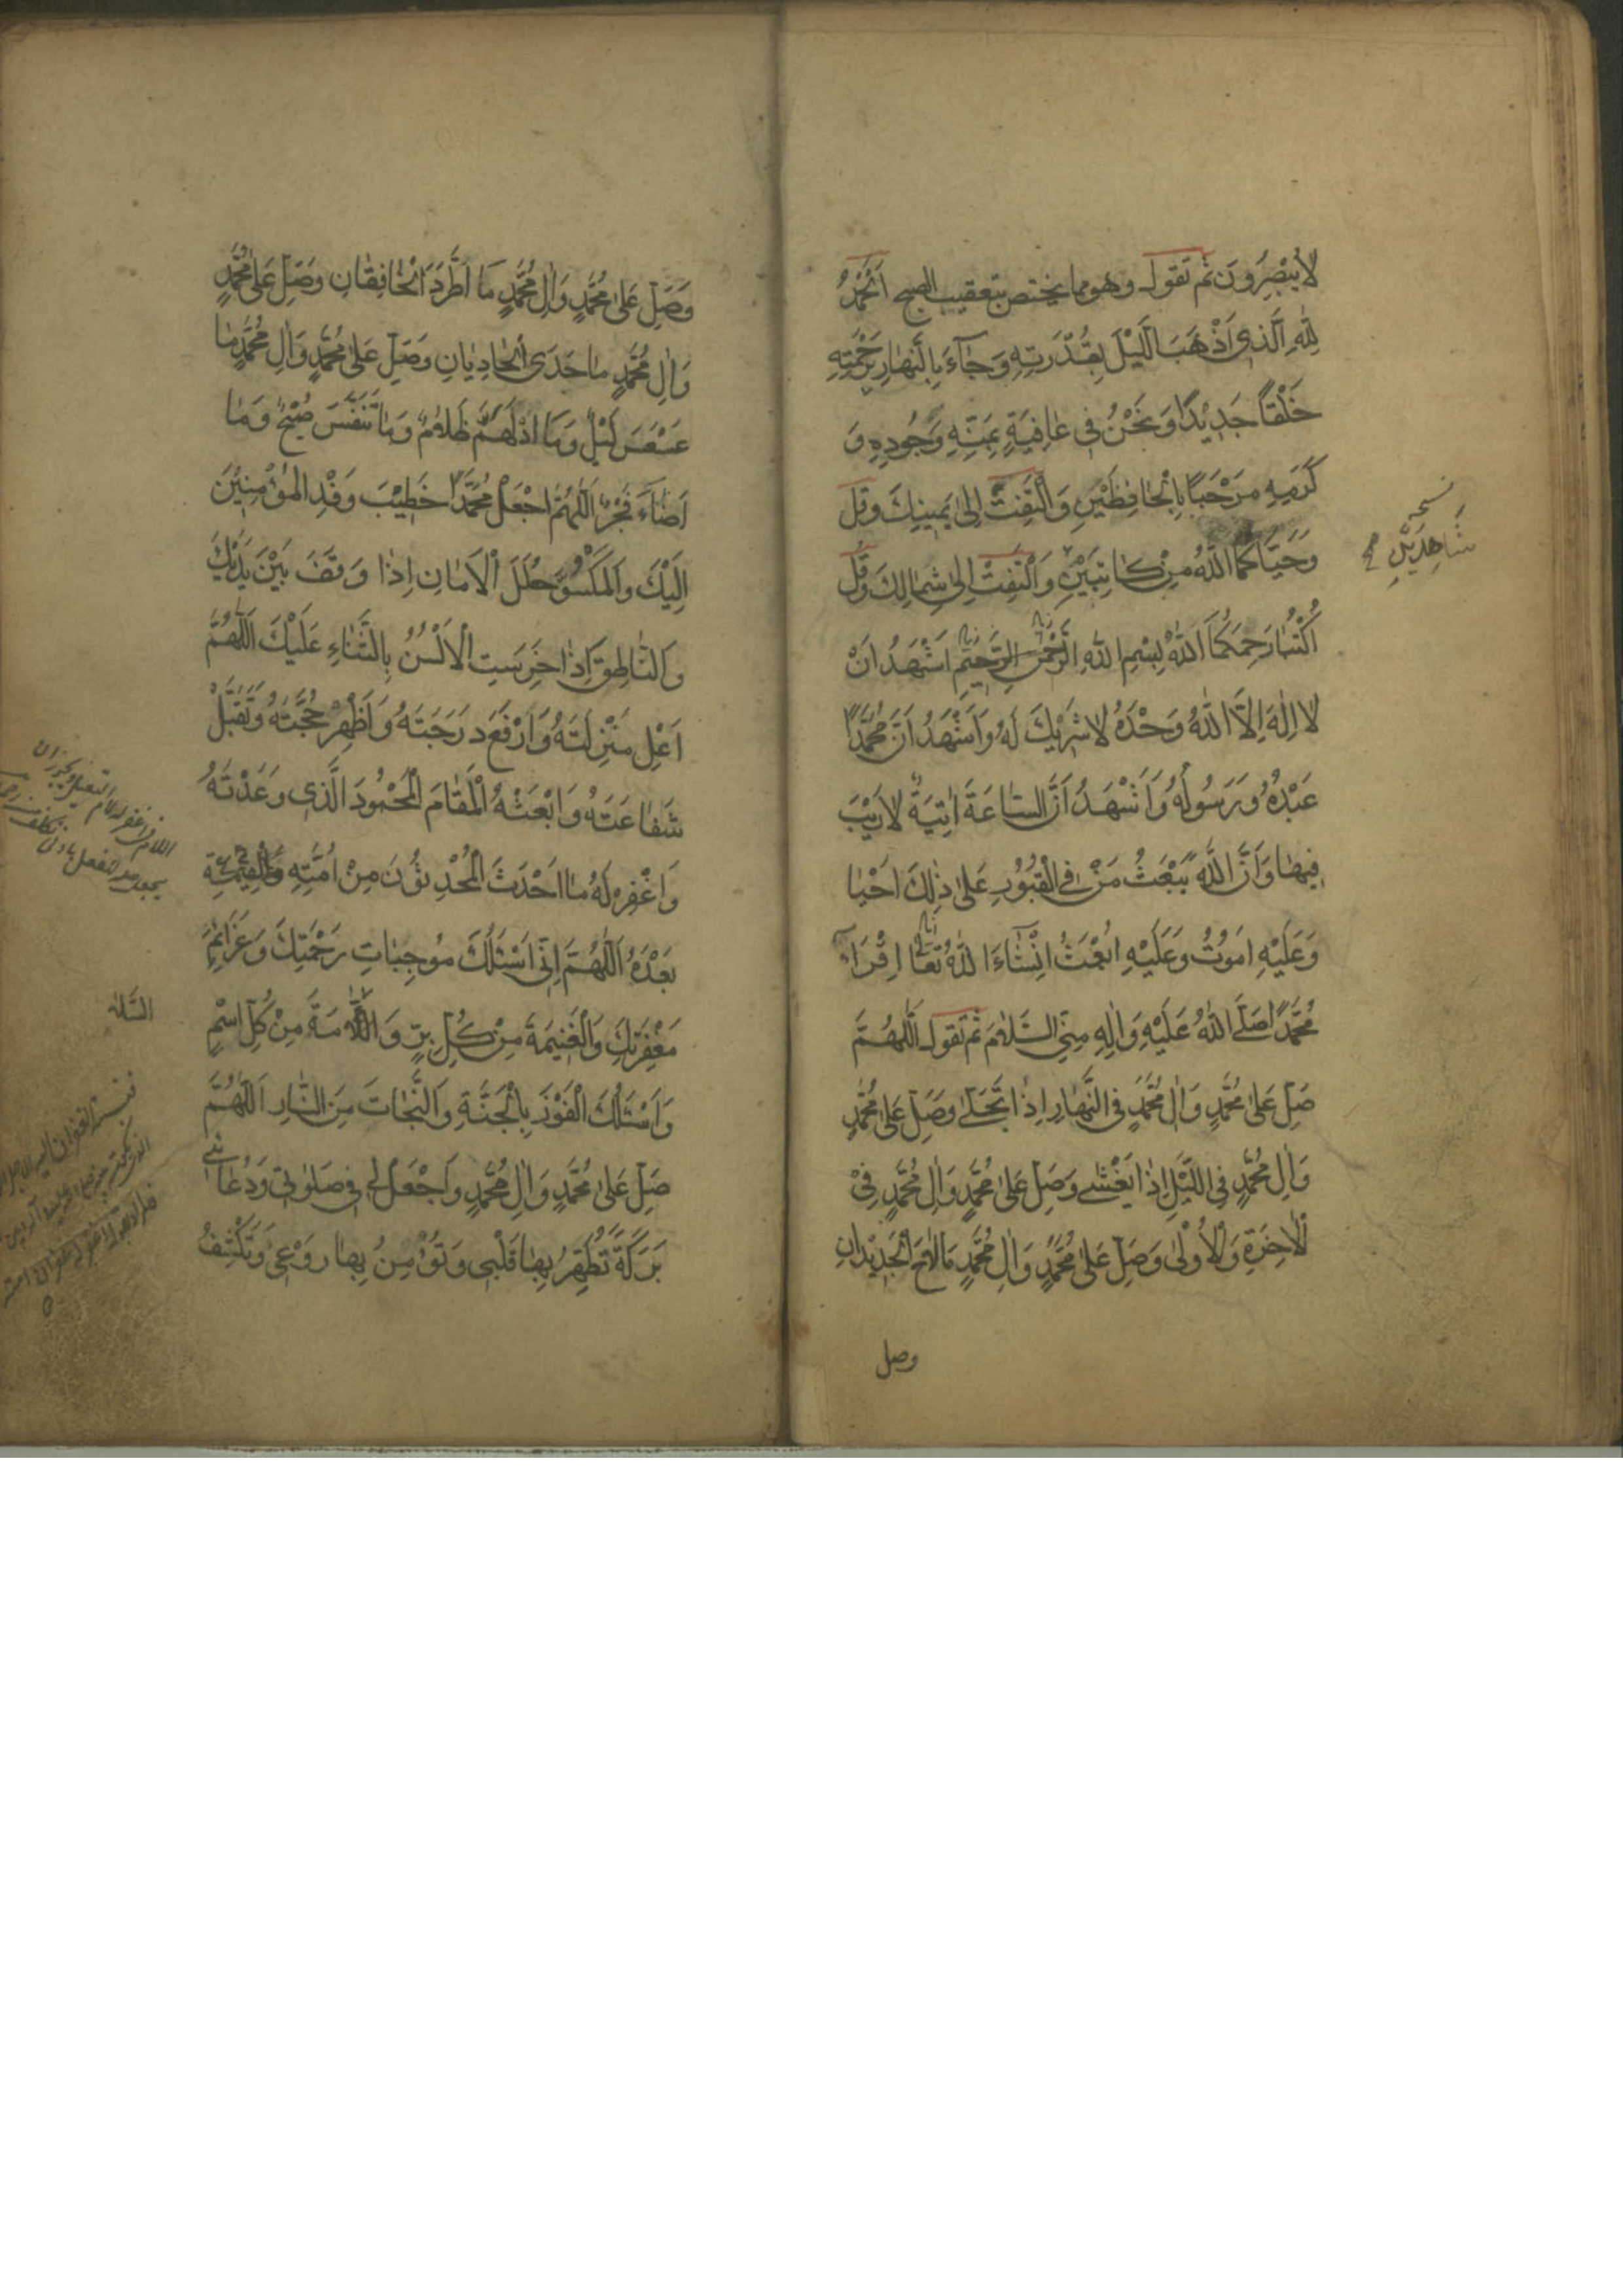 لَا يُبْصِرُونَ ثم تقول وهو مما يختص بتعقيب الصبح اَلْحَمْدُ
لِلّٰهِ الَّذِي اَذْهَبَ اللَّيْلَ بِقُدْرَتِهِ وَجَآءَ بِالنَّهَارِ بِرَحْمَتِهِ
خَلْقاً جَدِيْدًا وَنَحْنُ فِي عَافِيَةٍ بِمَنِّهِ وَجُودِهِ وَ
كَرَمِهِ مَرْحَبًا بِالْحَافِظَيْنِ وَالْتَفِتْ اِلىٰ يَمِينِكَ وقل
وَحَيَّاكُمَا اللّٰهُ مِنْ كَاتِبَيْنِ وَالْتَفِتْ اِلىٰ شِمَالِكَ وَقُلْ
نسخه
شَاهِدَيْنِ
اُكْتُبَا رَحِمَكُمَا اللّٰهُ بِسْمِ اللهِ الرَّحْمٰنِ الرَّحِيمِ اَشْهَدُ اَنْ
لا اِلٰهَ اِلَّا اللّٰهُ وَحْدَهُ لا شَرِيْكَ لَهُ وَاَشْهَدُ اَنَّ مُحَمَّدًا
عَبْدُهُ وَرَسُولُهُ وَاَشْهَدُ اَنَّ السَّاعَةَ اٰتِيَةٌ لارَيْبَ
فِيهَا وَاَنَّ اللّٰهَ يَبْعَثُ مَنْ فِي الْقُبُوْرِ عَلىٰ ذٰلِكَ اَحْيَا
وَعَلَيْهِ اَمُوْتُ وَعَلَيْهِ اُبْعَثُ اِنْشَآءَ اللّٰهُ تَعَالٰى اِقْرَاءْ
مُحَمَّدًا صَلَّى اللّٰهُ عَلَيْهِ وَاٰلِهِ مِنِّي السَّلَامَ ثم تقول اَللّٰهُمَّ
صَلِّ عَلىٰ مُحَمَّدٍ وَاٰلِ مُحَمَّدٍ فِي النَّهَارِ اِذَا تَجَلّٰى وَصَلِّ عَلىٰ مُحَمَّدٍ
وَاٰلِ مُحَمَّدٍ فِي اللَّيْلِ اِذَا يَغْشٰى وَصَلِّ عَلىٰ مُحَمَّدٍ وَاٰلِ مُحَمَّدٍ فِي
الْاٰخِرَةِ وَالْاُوْلىٰ وَصَلِّ عَلىٰ مُحَمَّدٍ وَاٰلِ مُحَمَّدٍ مَالَاحَ الْجَدِيْدَانِ
وصل
وَصَلِّ عَلىٰ مُحَمَّدٍ وَاٰلِ مُحَمَّدٍ مَا اطَّرَدَ الْخَافِقَانِ وَصَلِّ عَلىٰ مُحَمَّدٍ
وَاٰلِ مُحَمَّدٍ مَا حَدَى الْحَادِيَانِ وَصَلِّ عَلىٰ مُحَمَّدٍ وَاٰلِ مُحَمَّدٍ مَا
عَسْعَسَ لَيْلٌ وَمَا ادْلَهَمَّ ظَلَامٌ وَمَا تَنَفَّسَ صُبْحٌ وَمَا
اَضَآءَ فَجْرٌ اَللّٰهُمَّ اجْعَلْ مُحَمَّدًا خَطِيْبَ وَفْدِ الْمُؤْمِنِيْنَ
اِلَيْكَ وَالْمَكْسُوَّ حُلَلَ الْاَمَانِ اِذَا وَقَفَ بَيْنَ يَدَيْكَ
وَالنَّاطِقَ اِذَا خَرِسَتِ الْاَلْسُنُ بِالثَّنَاءِ عَلَيْكَ اَللّٰهُمَّ
اَعْلِ مَنْزِلَتَهُ وَارْفَعْ دَرَجَتَهُ وَاَظْهِرْ حُجَّتَهُ وَتَقَبَّلْ
شَفَاعَتَهُ وَابْعَثْهُ الْمَقَامَ الْمَحْمُودَ الَّذِي وَعَدْتَهُ
وَاغْفِرْ لَهُ مَا اَحْدَثَ الْمُحْدِثُوْنَ مِنْ اُمَّتِهِ
بَعْدَهُ اَللّٰهُمَّ اِنِّي اَسْئَلُكَ مُوجِبَاتِ رَحْمَتِكَ وَعَزَائِمَ
مَغْفِرَتِكَ وَالْغَنِيمَةَ مِنْ كُلِّ بِرٍّ وَالسَّلَامَةَ مِنْ كُلِّ اِثْمٍ
وَاَسْئَلُكَ الْفَوْزَ بِالْجَنَّةِ وَالنَّجَاتَ مِنَ النَّارِ اَللّٰهُمَّ
صَلِّ عَلىٰ مُحَمَّدٍ وَاٰلِ مُحَمَّدٍ وَاجْعَلْ لِي فِي صَلوٰتِي وَدُعَائِي
بَرَكَةً تُطَهِّرُ بِهَا قَلْبِي وَتُؤْمِنُ بِهَا رَوْعَتِي وَتَكْشِفُ